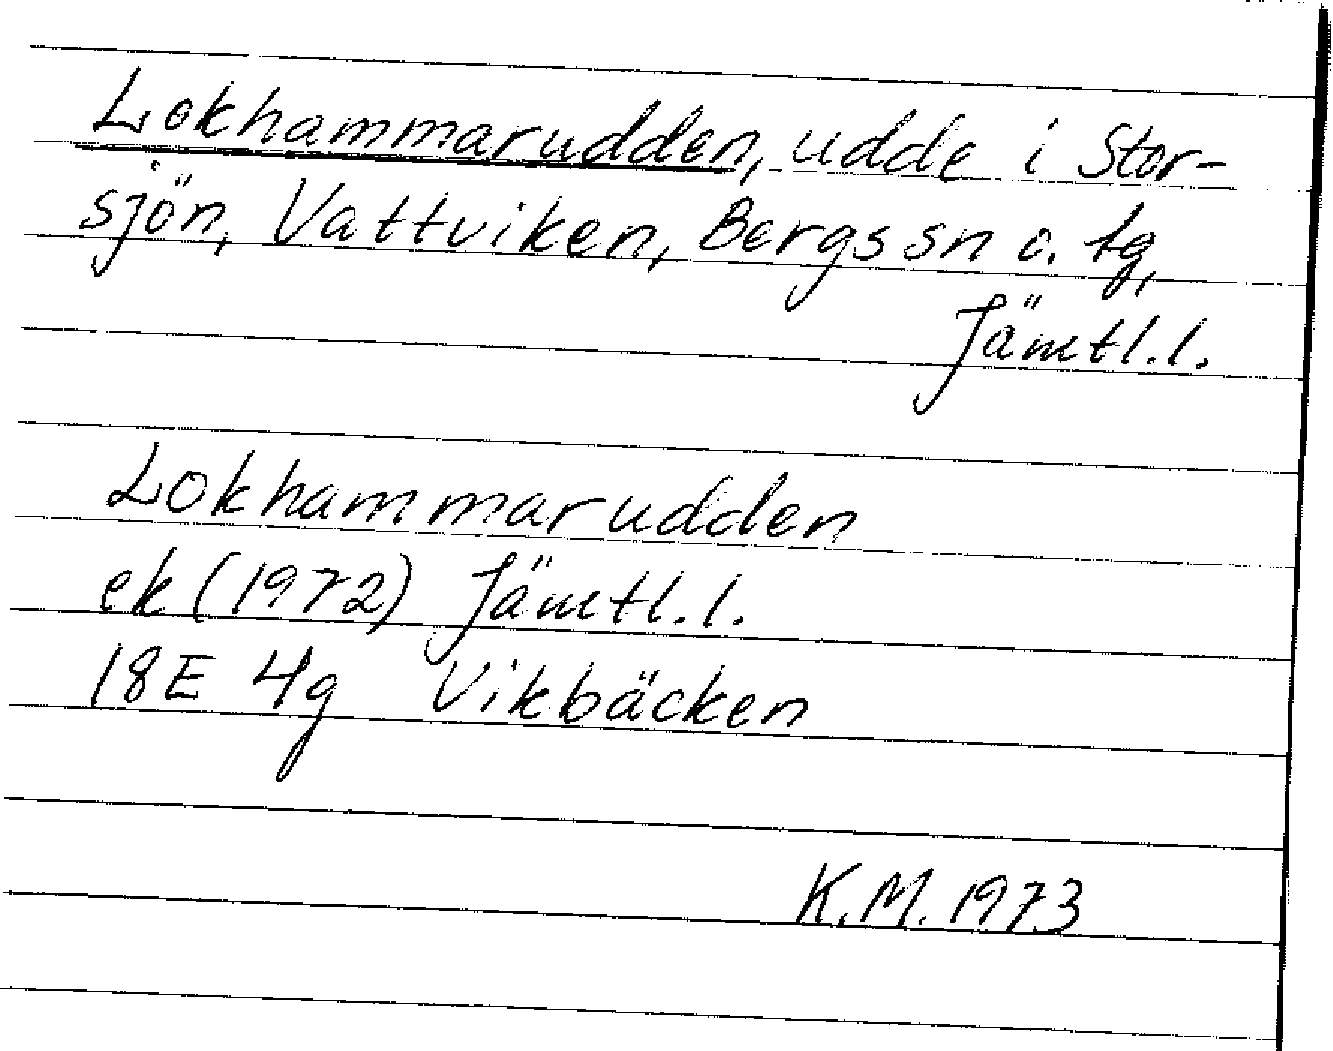 Lokhammarudden, udde i Stor-
sjön, Vattviken, Bergs sn o. tg,
Jämtl.l.
Lokhammarudden
ek (1972) Jämtl.l.
18E 4g Vikbäcken
K.M. 1973